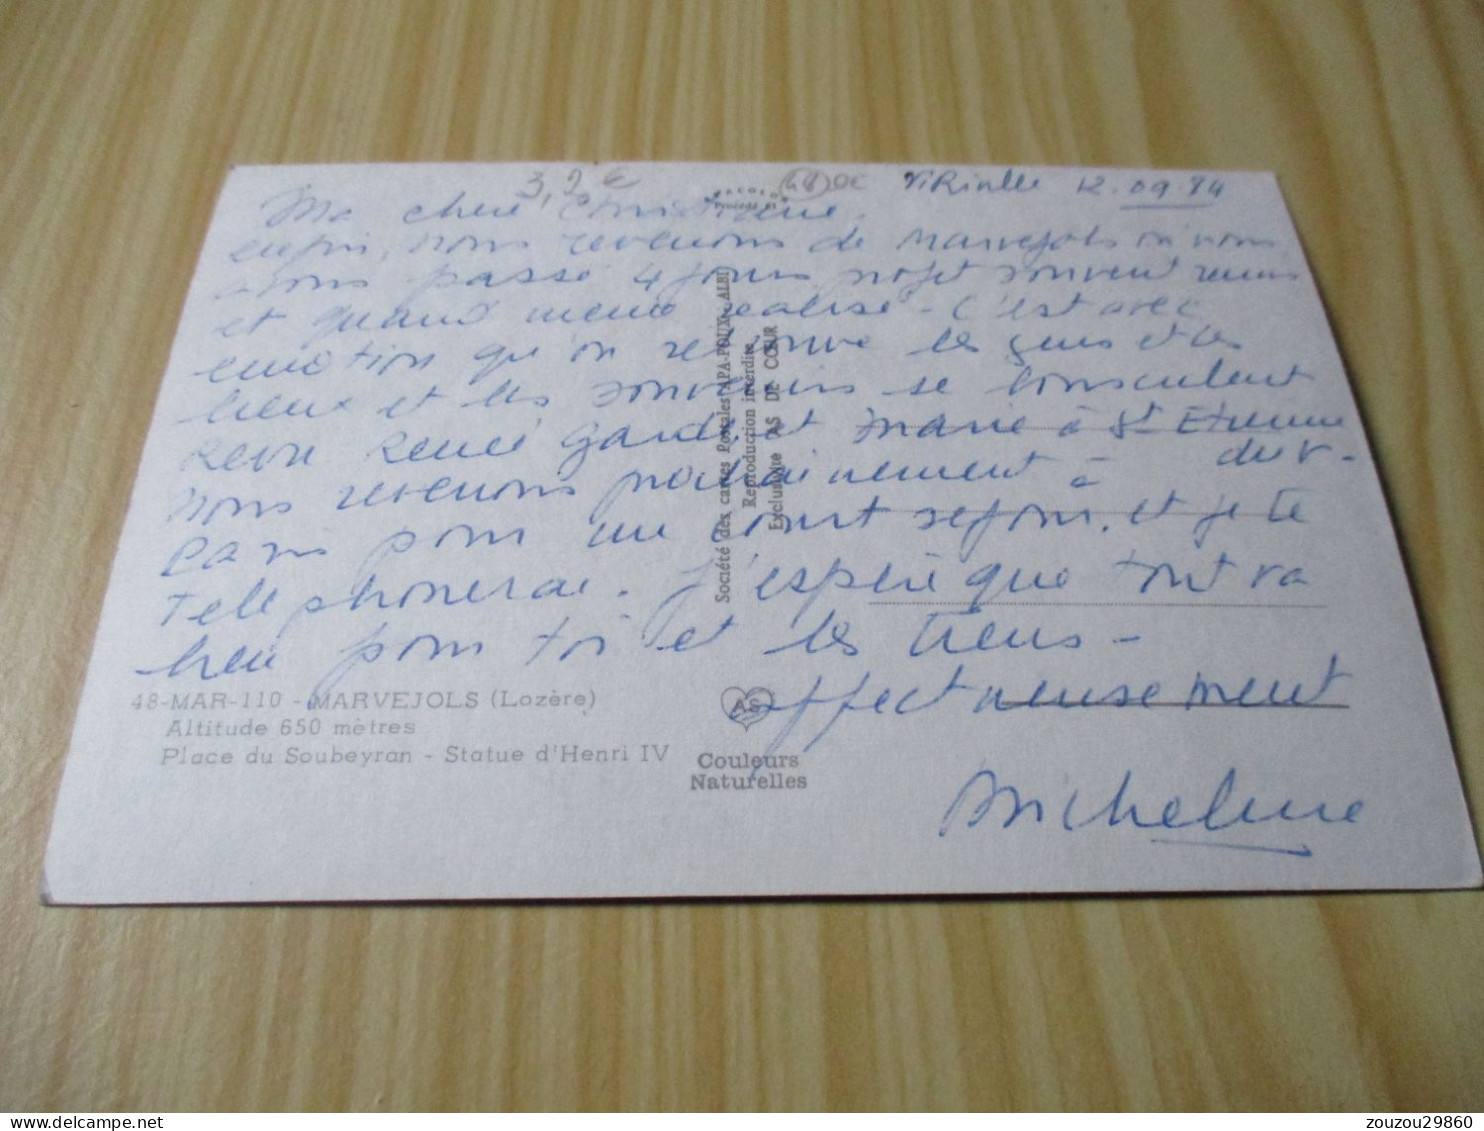 3,9 € (48) OC Virialle 12.09.84
Ma chère Christiane
enfin, nous revenons de Marvejols où nous
avons passé 4 jours projet souvent remis
et quand même réalisé - C'est avec
emotion qu'on retrouve les gens et les
lieux et les souvenirs se bousculent
Revu Renée Gard et Marie à St Etienne
du V.
nous revenons prochainement à
Paris pour un court séjour, et je te
telephonerai. J'espère que tout va
bien pour toi et les tiens -
affectueusement
Micheline
48-MAR-110 - MARVEJOLS (Lozère)
Altitude 650 mètres
Place du Soubeyran - Statue d'Henri IV
MACOLO
Procédé
Société des cartes Postales APA-POUX - ALBI
Reproduction interdite
Exclusivité AS DE CŒUR
AS
Couleurs
Naturelles
zouzou29860